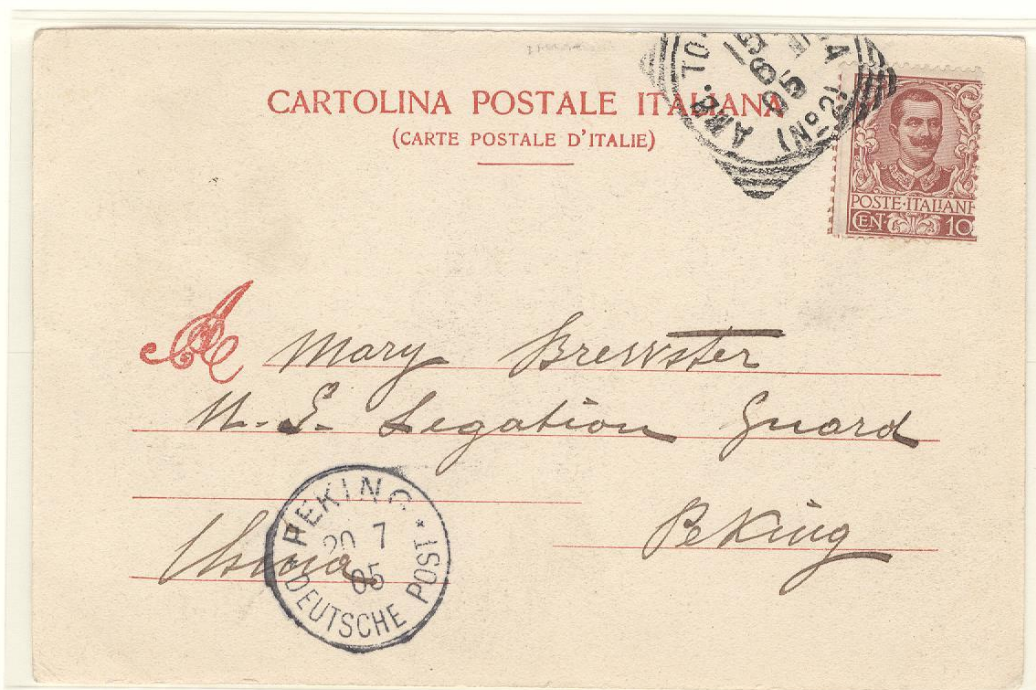 CARTOLINA POSTALE ITALIANA
(CARTE POSTALE D'ITALIE)
AMB. (No 2)
POSTE·ITALIANE
CEN· 10
A Mary Brewster
U. S. Legation Guard
Peking
China
PEKING
20 7
05
* DEUTSCHE POST *